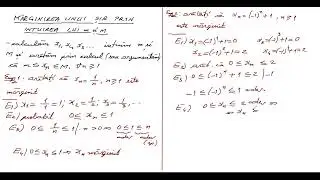 MĂRGINIREA UNUI ȘIR PRIN
INTUIREA LUI m ȘI M
calculăm x₁, x₂, x₃ ... intuim m și
M și arătăm prin calcul (sau argumentăm)
că m ≤ xₙ ≤ M, ∀ n ≥ 1
Ex₁: arătați că xₙ = 1/n, n ≥ 1 este
mărginit
E₁) x₁ = 1/1 = 1; x₂ = 1/2; x₃ = 1/3
E₂) probabil 0 ≤ xₙ ≤ 1
E₃) 0 ≤ 1/n ≤ 1 | · n > 0 ⇒ 0 ≤ 1 ≤ n
adev adev
E₄) 0 ≤ xₙ ≤ 1 ⇒ xₙ mărginit
Ex₂: arătați că xₙ = (-1)ⁿ + 1, n ≥ 1
este mărginit
E₁) x₁ = (-1)¹ + 1 = 0
x₂ = (-1)² + 1 = 2
x₃ = (-1)³ + 1 = 0
E₂) 0 ≤ xₙ ≤ 2
E₃) 0 ≤ (-1)ⁿ + 1 ≤ 2 | -1
-1 ≤ (-1)ⁿ ≤ 1 adev.
E₄) 0 ≤ xₙ ≤ 2 adev ⇒
⇒ xₙ m.